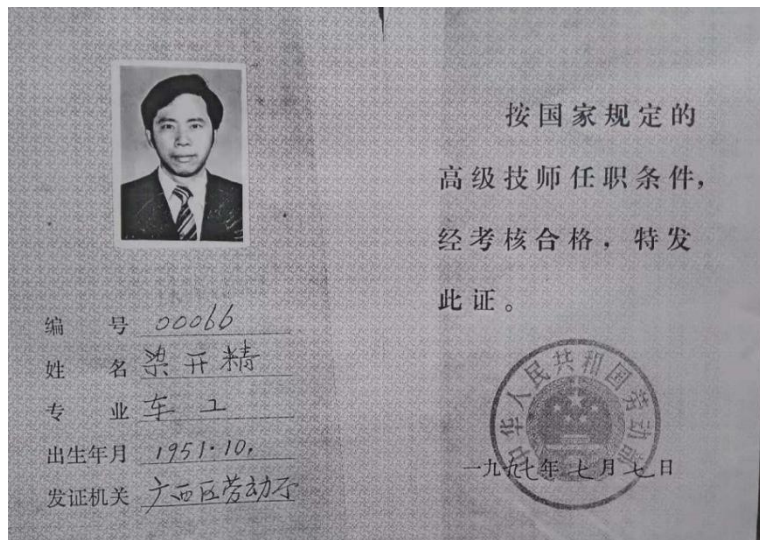 编号 00066
姓名 梁开精
专业 车工
出生年月 1951.10.
发证机关 广西区劳动厅
按国家规定的
高级技师任职条件，
经考核合格，特发
此证。
中华人民共和国劳动部
一九九七年七月七日